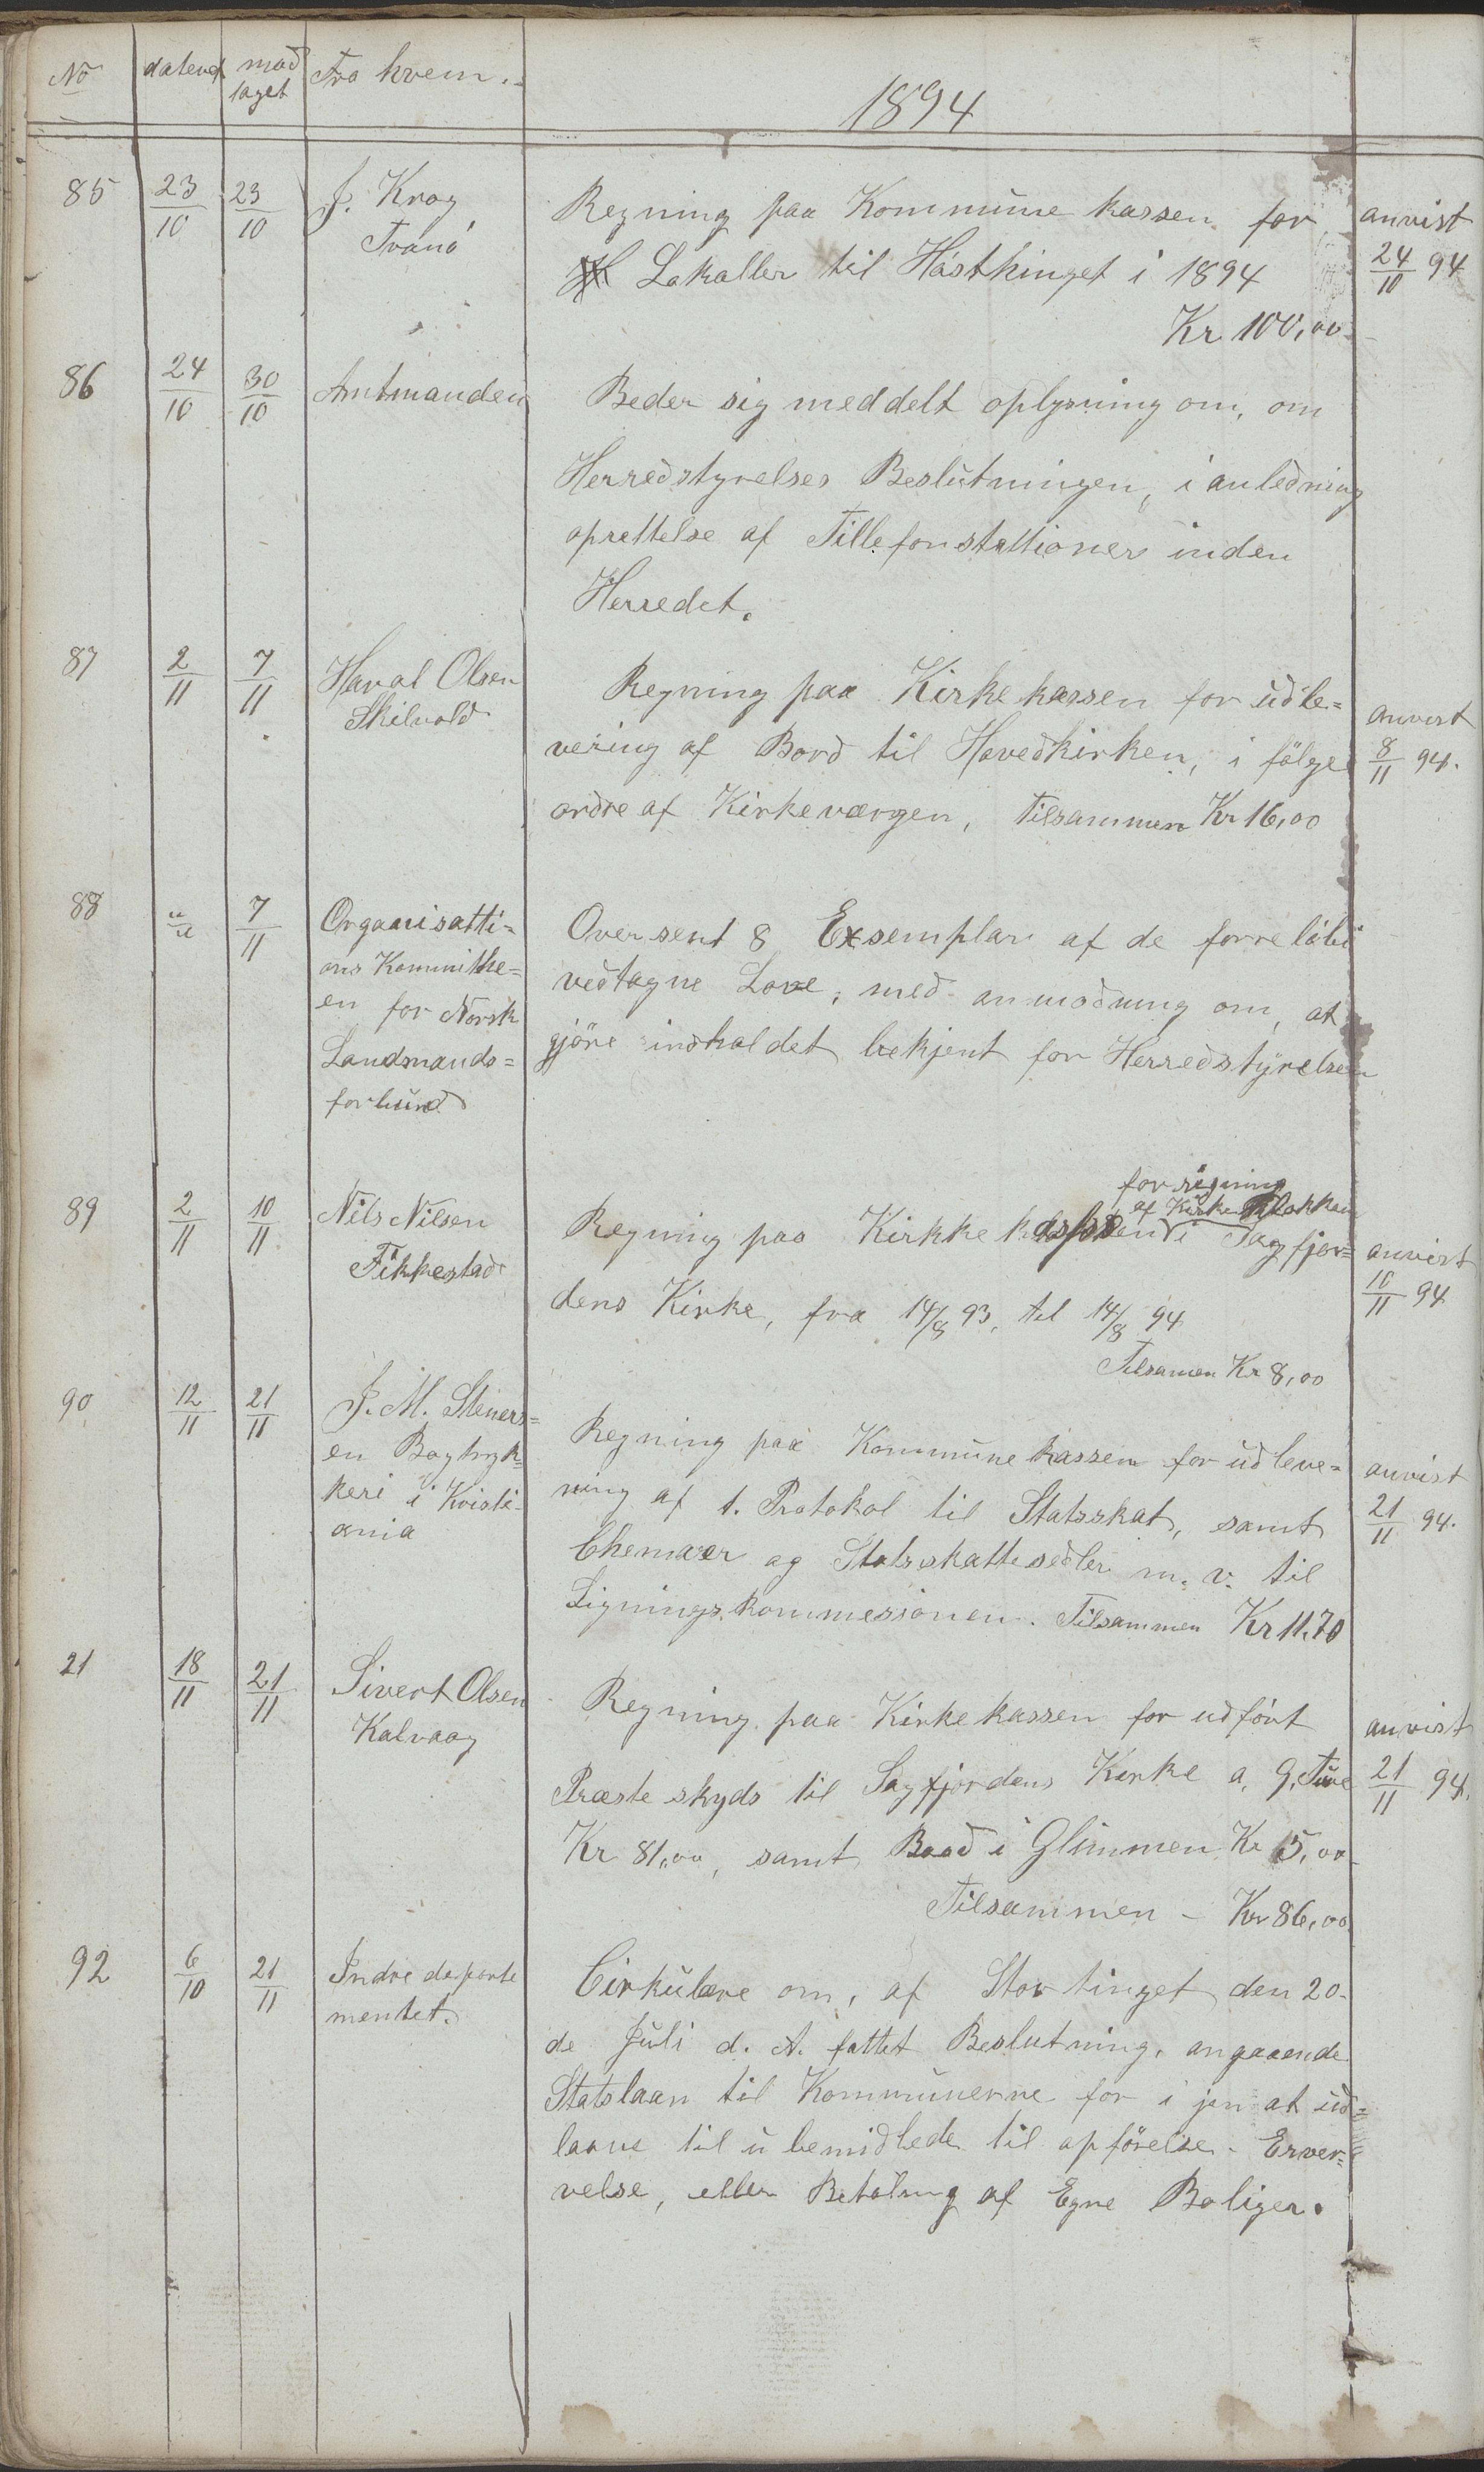 No datered mod taget Fra hvem.
1894
85 23/10 23/10 J. Krog Tranö
Regning paa Kommune kassen for
Lokaller til Hösthinget i 1894
Kr 100,00
anvist 24/10 94
86 24/10 30/10 Amtmanden
Beder sig meddelt oplysning om, om
Herredstyrelses Beslutningen, i anledning
oprettelse af Tillefonstattioner inden
Herredet.
87 2/11 7/11 Haval Olsen Skilvold
Regning paa Kirkekassen for udle=
vering af Bord til Hovedkirken, i fölge
ordre af Kirkeværgen, Tilsammen Kr 16,00
anvist 8/11 94.
88 "/" 7/11
Organisatti=
ons Kommithe=
en for Norsk
Landmands=
forbund
Oversent 8 Exsemplar af de forrelöbi
vedtagne Love, med anmodning om, at
gjöre indholdet bekjent for Herredstyrelsen
89 2/11 10/11 Nils Nilsen Fikkestad
for rigning
af Kirke Klokken
Regning paa Kirkke i Sagfjor=
dens Kirke, fra 14/8 93, til 14/8 94
Tilsamen Kr 8,00
anvist 10/11 94
90 12/11 21/11
J. M. Steners=
en Bogtryk=
keri i Kristi-
ania
Regning paa Kommune kassen for udleve=
ring af 1. Protokol til Statsskat, samt
Chemaer og Statsskattesedler m. v. til
Lignings.kommesionen. Tilsammen Kr 11,70
anvist 21/11 94.
21 18/11 21/11 Sivert Olsen Kalvaag
Regning paa Kirkekassen for udfört
Præste skyds til Sagfjordens Kirke a, 9, Ture
Kr 81,00, samt Baad i Glimmen Kr 5,00
Tilsammen - Kr 86,00
anvist 21/11 94.
92 6/10 21/11
Indre departe
mentet.
Cirkulære om, af Stortinget den 20-
de Juli d. A. fattet Beslutning, angaaende
Statslaan til Kommunerne for i jen at ud=
laane til u bemidlede til opförelse - Erver=
velse, eller Betaling af Egne Boliger.